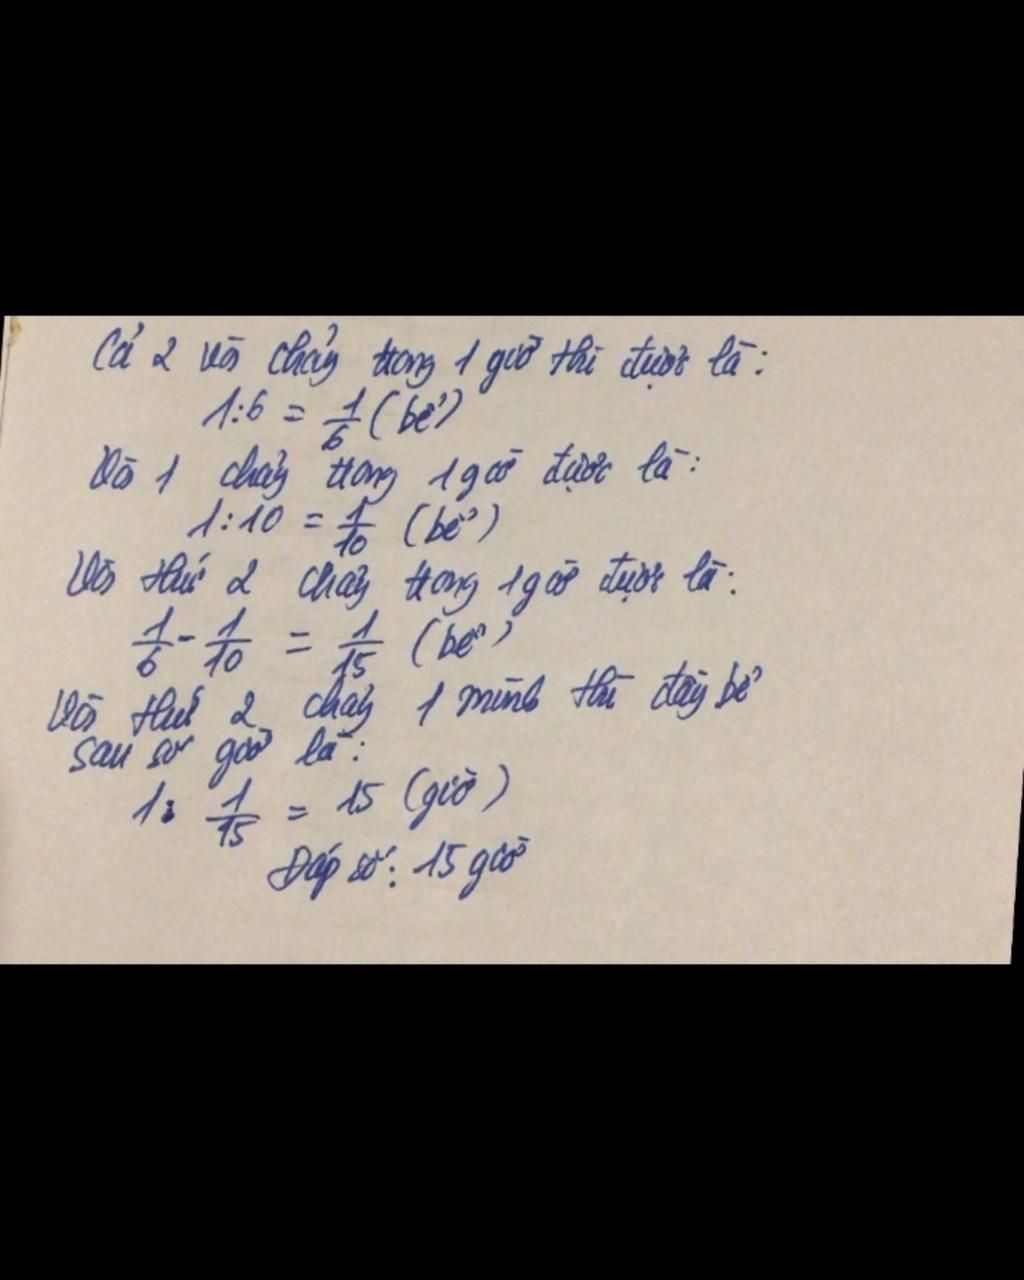 Cả 2 vòi chảy trong 1 giờ thì được là:
1:6 = 1/6 (bể)
Vòi 1 chảy trong 1 giờ được là:
1:10 = 1/10 (bể)
Vòi thứ 2 chảy trong 1 giờ được là:
1/6 - 1/10 = 1/15 (bể)
Vòi thứ 2 chảy 1 mình thì đầy bể
sau số giờ là:
1: 1/15 = 15 (giờ)
Đáp số: 15 giờ